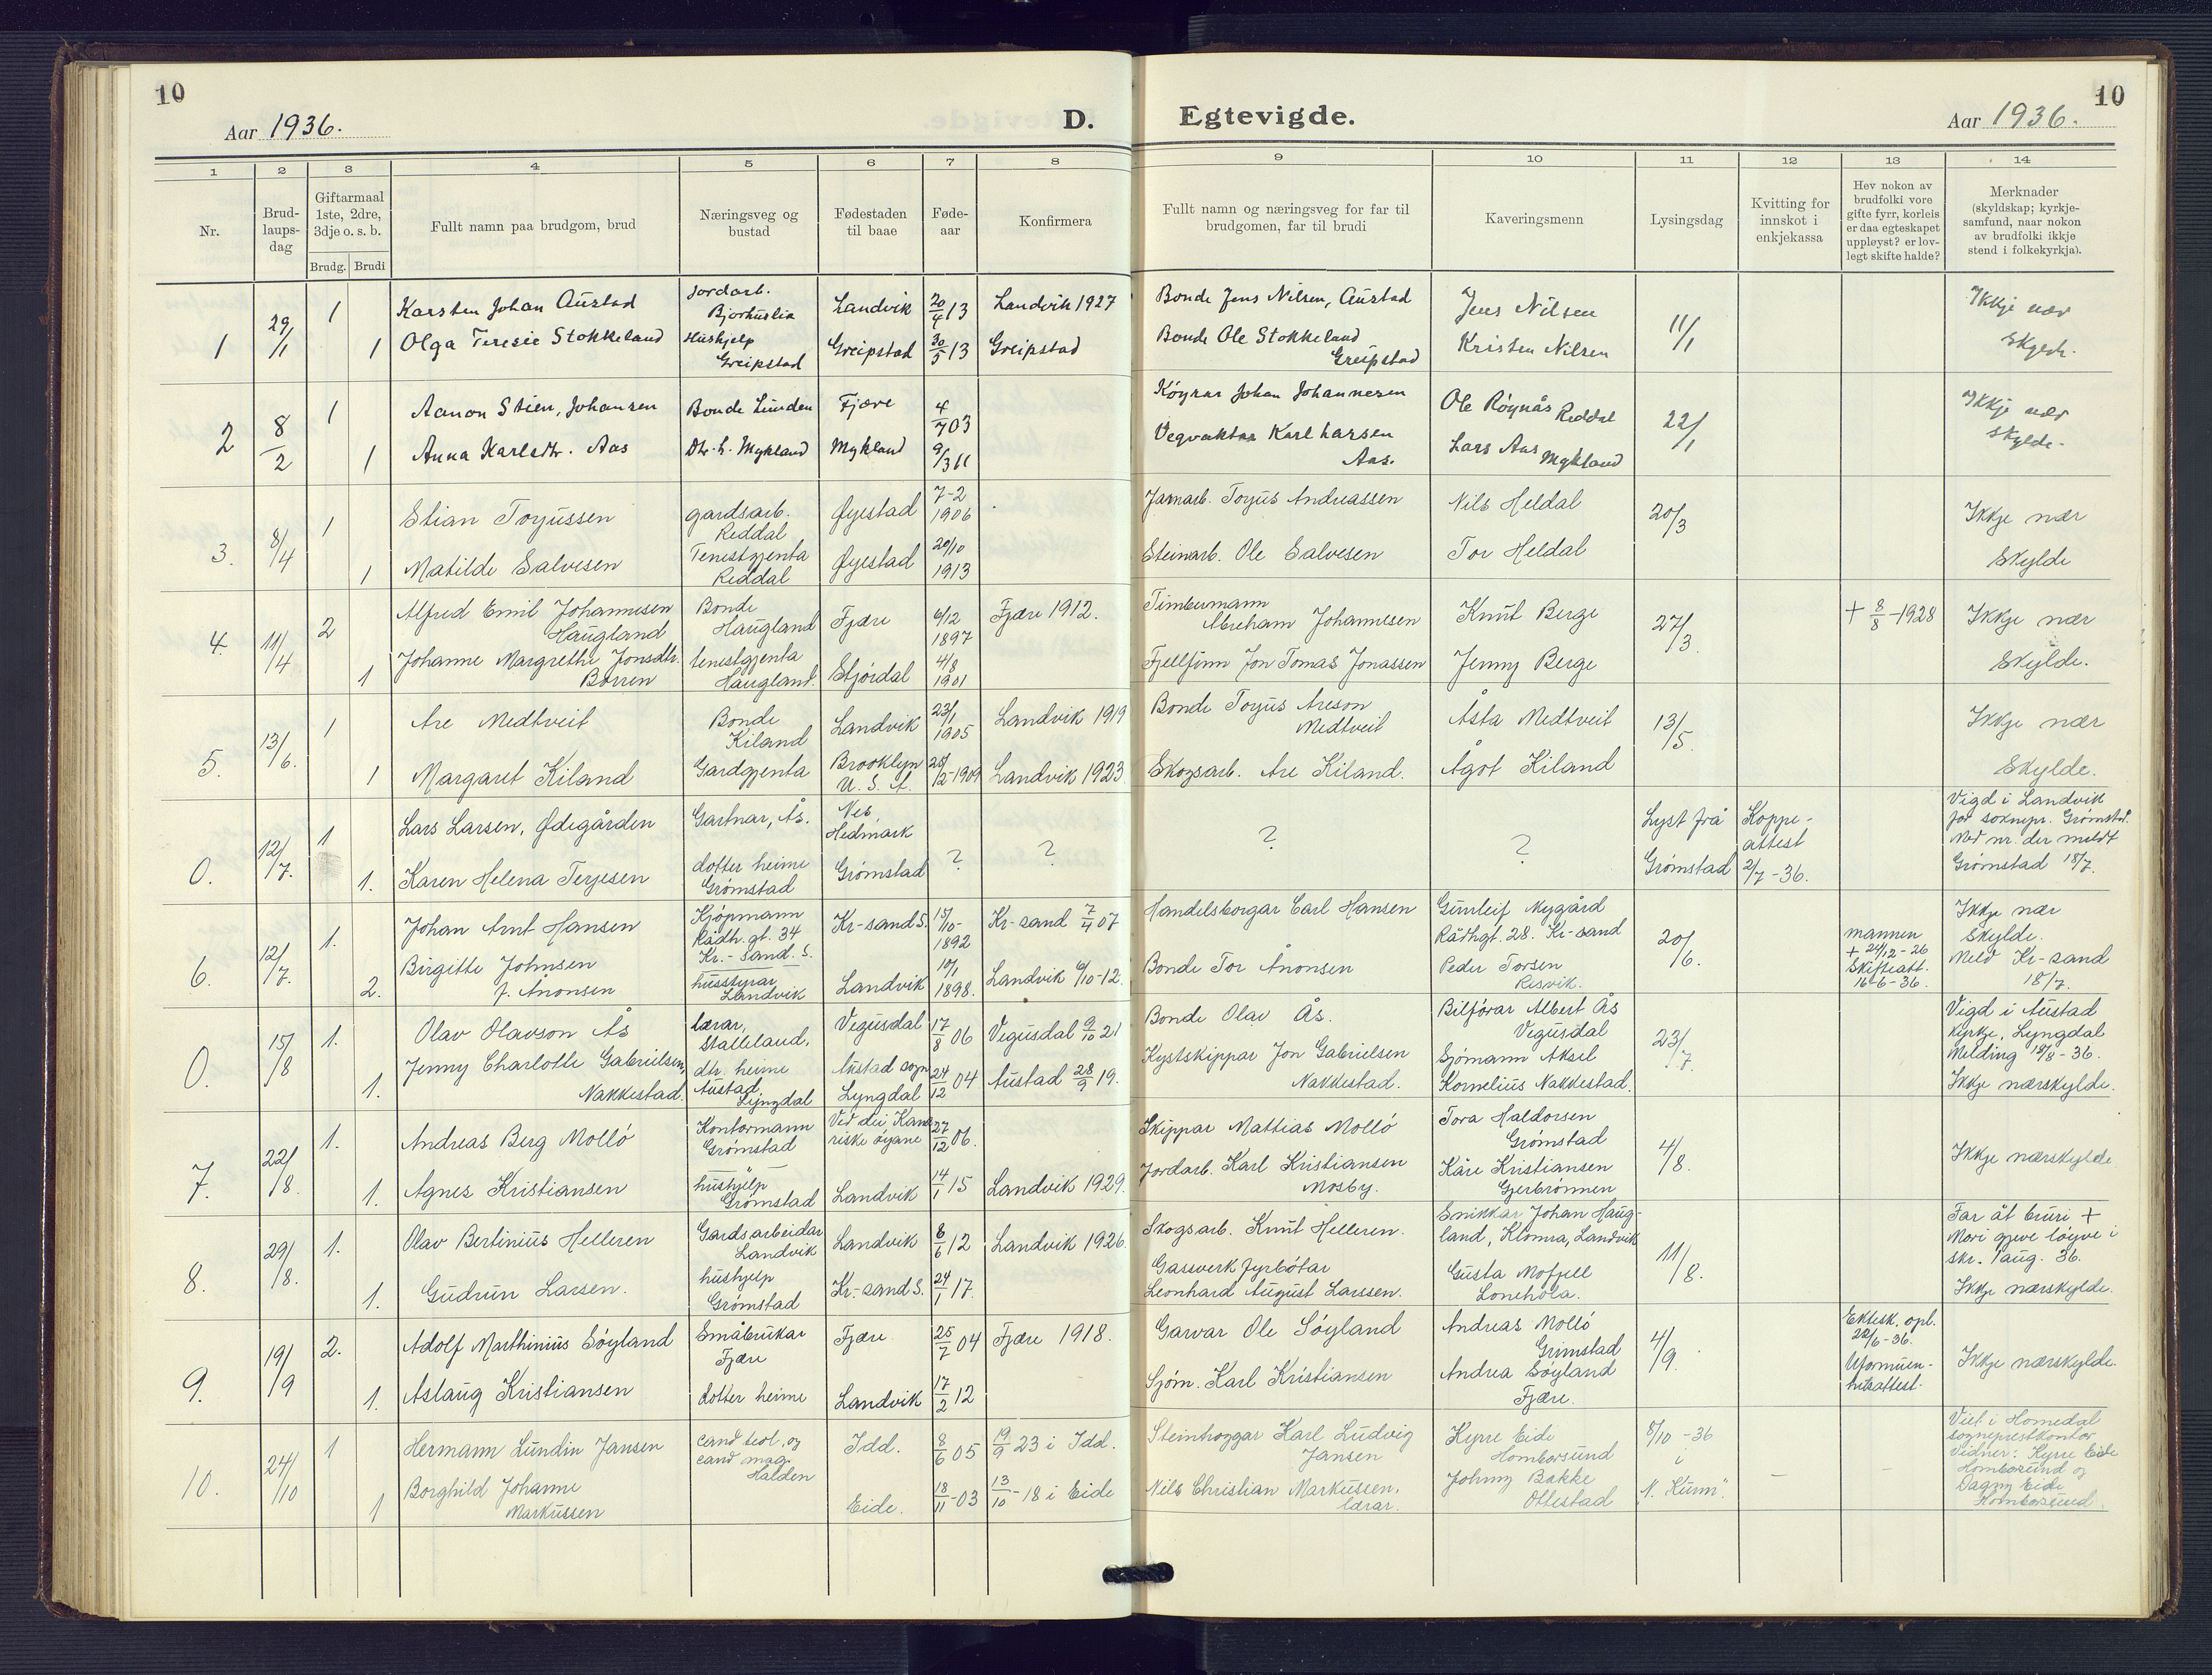 10
Aar 1936.
D.
Egtevigde.
Aar 1936.
10
1 2 3 4 5 6 7 8 9 10 11 12 13 14
Nr.
Brud-
laups-
dag
Giftarmaal
1ste, 2dre,
3dje o. s. b.
Brudg. Brudi
Fullt namn paa brudgom, brud
Næringsveg og
bustad
Fødestaden
til baae
Føde-
aar
Konfirmera
Fullt namn og næringsveg for far til
brudgomen, far til brudi
Kaveringsmenn
Lysingsdag
Kvitting for
innskot i
enkjekassa
Hev nokon av
brudfolki vore
gifte fyrr, korleis
er daa egteskapet
uppløyst? er lov-
legt skifte halde?
Merknader
(skyldskap; kyrkje-
samfund, naar nokon
av brudfolki ikkje
stend i folkekyrkja).
1 29/1
1 Karsten Johan Austad Jordarb.
Bjorhuslia Landvik 20/4 13 Landvik 1927 Bonde Jens Nilsen, Austad Jens Nilsen 11/1 Ikkje nær
1 Olga Teresie Stokkeland Hushjelp
Greipstad Greipstad 30/5 13 Greipstad Bonde Ole Stokkeland
Greipstad Kristen Nilsen Skyld.
2 8/2
1 Aanon Stien, Johansen Bonde Lunden Fjære 4/7 03 Køyrar Johan Johannesen Ole Røynås Reddal 22/1 Ikkje nær
1 Anna Karlsdtr. Aas Dtr. h. Mykland Mykland 9/3 11 Vegvaktar Karl Larsen
Aas. Lars Aas Mykland Skylde.
3. 8/4
1 Stian Torjussen gardsarb.
Reddal Øyestad 7-2
1906 Jarnarb. Torjus Andreassen Nils Heldal 20/3 Ikkje nær
1 Matilde Salvesen Tenestgjenta
Reddal Øyestad 20/10
1913 Steinarb. Ole Salvesen Tor Heldal Skylde
4. 11/4
2 Alfred Emil Johannesen
Haugland Bonde
Haugland Fjære 6/12
1897 Fjære 1912. Timbermann
Abreham Johannesen Knut Berge 27/3. + 8/8-1928 Ikkje nær
1 Johanne Margrethe Jonsdtr.
Borren tenestgjenta
Haugland. Stjórdal 4/8
1901 Fjellfinn Jon Tomas Jonassen Jenny Berge Skylde.
5. 13/6.
1 Are Medtveit Bonde
Kiland Landvik 23/1
1905 Landvik 1919 Bonde Torjus Areson
Medtveit Åsta Medtveit 13/5. Ikkje nær
1 Margaret Kiland Gardgjenta Brooklyn
U. S. A. 25/2-1909 Landvik 1923 Skogsarb. Are Kiland. Ågot Kiland Skylde.
0. 12/7.
1 Lars Larsen, Ødegården Gartnar, Ås. Nes,
Hedmark ? ? ? ? Lyst frå
Grømstad Koppe-
attest
2/7-36. Vigd i Landvik
for soknepr. Grømstd.
Med nr. der meldt
Grømstad 18/7.
1. Karen Helena Terjesen dotter heime
Grømstad Grømstad
6. 12/7.
1. Johan Arnt Hansen Kjøpmann
Rådh. gt. 34
Kr.-sand. S. Kr-sand S. 15/10-
1892 Kr-sand 7/4 07 Handelsborgar Carl Hansen Gunleif Nygård
Rådhgt. 28. Kr-sand 20/6. mannen
+ 24/12-26
Skifteatt.
16-6-36. Ikkje nær
Skylde.
Meld Kr-sand
18/7.
2. Birgitte Johnsen
f. Anonsen husstyrar
Landvik Landvik 10/1
1898. Landvik 6/10-12. Bonde Tor Ånonsen Peder Torsen
Risvik.
0. 15/8
1. Olav Olavson Ås lærar,
Stalleland. Vegusdal 17/8 06 Vegusdal 9/10 21 Bonde Olav Ås. Bilførar Albert Ås
Vegusdal 23/7. Vigd i Austad
kyrkje, Lyngdal
Melding 18/8-36.
Ikkje nærskylde.
1. Jenny Charlotte Gabrielsen,
Nakkestad. dtr. heime
Austad
Lyngdal Austad sogn
Lyngdal 24/12 04 Austad 28/9 19. Kystskippar Jon Gabrielsen
Nakkestad. Sjømann Aksel
Kornelius Nakkestad.
7. 22/8.
1. Andreas Berg Molló Kontormann
Grømstad Ved dei Kana-
riske øyane 27/12 06. Skippar Mattias Molló Tora Haldorsen
Grømstad 4/8. Ikkje nærskylde.
1. Agnes Kristiansen hushjelp
Grømstad Landvik 14/1 15 Landvik 1929. Jordarb. Karl Kristiansen
Mosby. Kåre Kristiansen
Gjerbrønnen
8. 29/8.
1. Olav Bertinius Helleren Gardsarbeidar
Landvik Landvik 8/6 12 Landvik 1926. Skogsarb. Knut Helleren. Snikkar Johan Haug-
land, Klomra, Landvik 11/8. Far åt bruri +
Mori gjeve løyve i
skr. 1 aug. 36.
Ikkje nærskylde.
1. Gudrun Larsen. hushjelp
Grømstad Kr-sand S. 24/1 17. Gassverk fyrbøtar
Leonhard August Larssen. Gusta Mofjell
Lonehola.
9. 19/9
2. Adolf Marthinius Søyland Småbrukar
Fjære Fjære 25/7 04 Fjære 1918. Garvar Ole Søyland Andreas Molló
Grimstad 4/9. Ektesk. opl.
22/6-36.
Uformuen-
hetsattest. Ikkje nærskylde.
1. Aslaug Kristiansen dotter heime Landvik 17/2 12 Sjøm. Karl Kristiansen Andrea Søyland
Fjære.
10. 24/10
1 Hermann Lundin Jansen cand. teol. og
cand mag.
Halden Idd. 8/6 05 19/9 23 i Idd. Steinhoggar Karl Ludvig
Jansen Kyrre Eide
Homborsund 8/10-36
i
"N. Kunn". - - Viet i Homedal
sogneprestkontor
Vidner: Kyrre Eide
Homborsund og
Dagny Eide
Homborsund.
1 Borghild Johanne
Markussen Eide. 18/11-03 13/10-18 i Eide Nils Christian Markussen,
lærar. Johnny Bakke
Ottestad